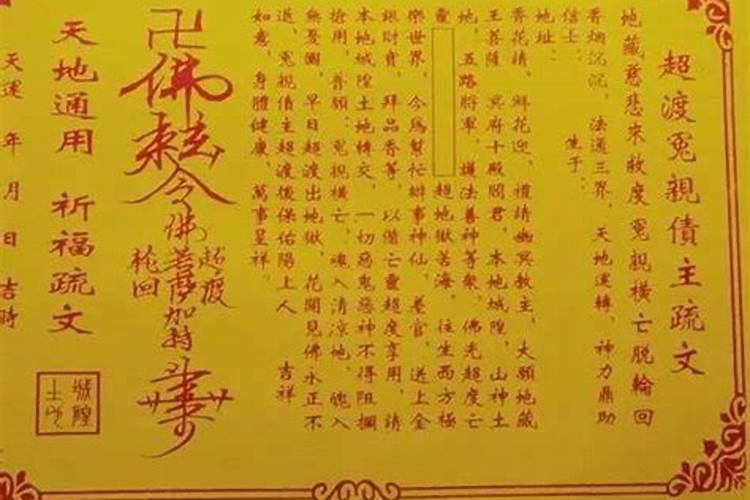 超渡冤親債主疏文
地藏慈悲來救度 冤親橫亡脫輪回
香烟沉沉，法通三界，天地運轉，神力鼎助
信士： 生于：
地址：
香花請，鮮花迎，禮請幽冥教主，大願地藏
王菩薩 冥府十殿閻君，本地城隍，山神土
地，五路將軍，護法善神等眾，佛光超度亡
靈 超地獄苦海，往生西方極
樂世界，今為幫忙辦事神仙，差官，送上金
銀財寶，拜品香等，以備亡靈超度享用，請
本地城隍土地轉交，一切惡鬼惡神不得阻攔
搶用，普願：冤親橫亡，魂入清涼地，魄入
無憂園，早日超渡出地獄，花開見佛永正不
退，冤親債主超渡後保佑陽上人 吉祥
如意，身體健康，萬事呈祥。
卍佛
令
佛菩薩加持
超渡
輪回
天地通用 祈福疏文
天運 年 月 日 吉時
城隍
土地